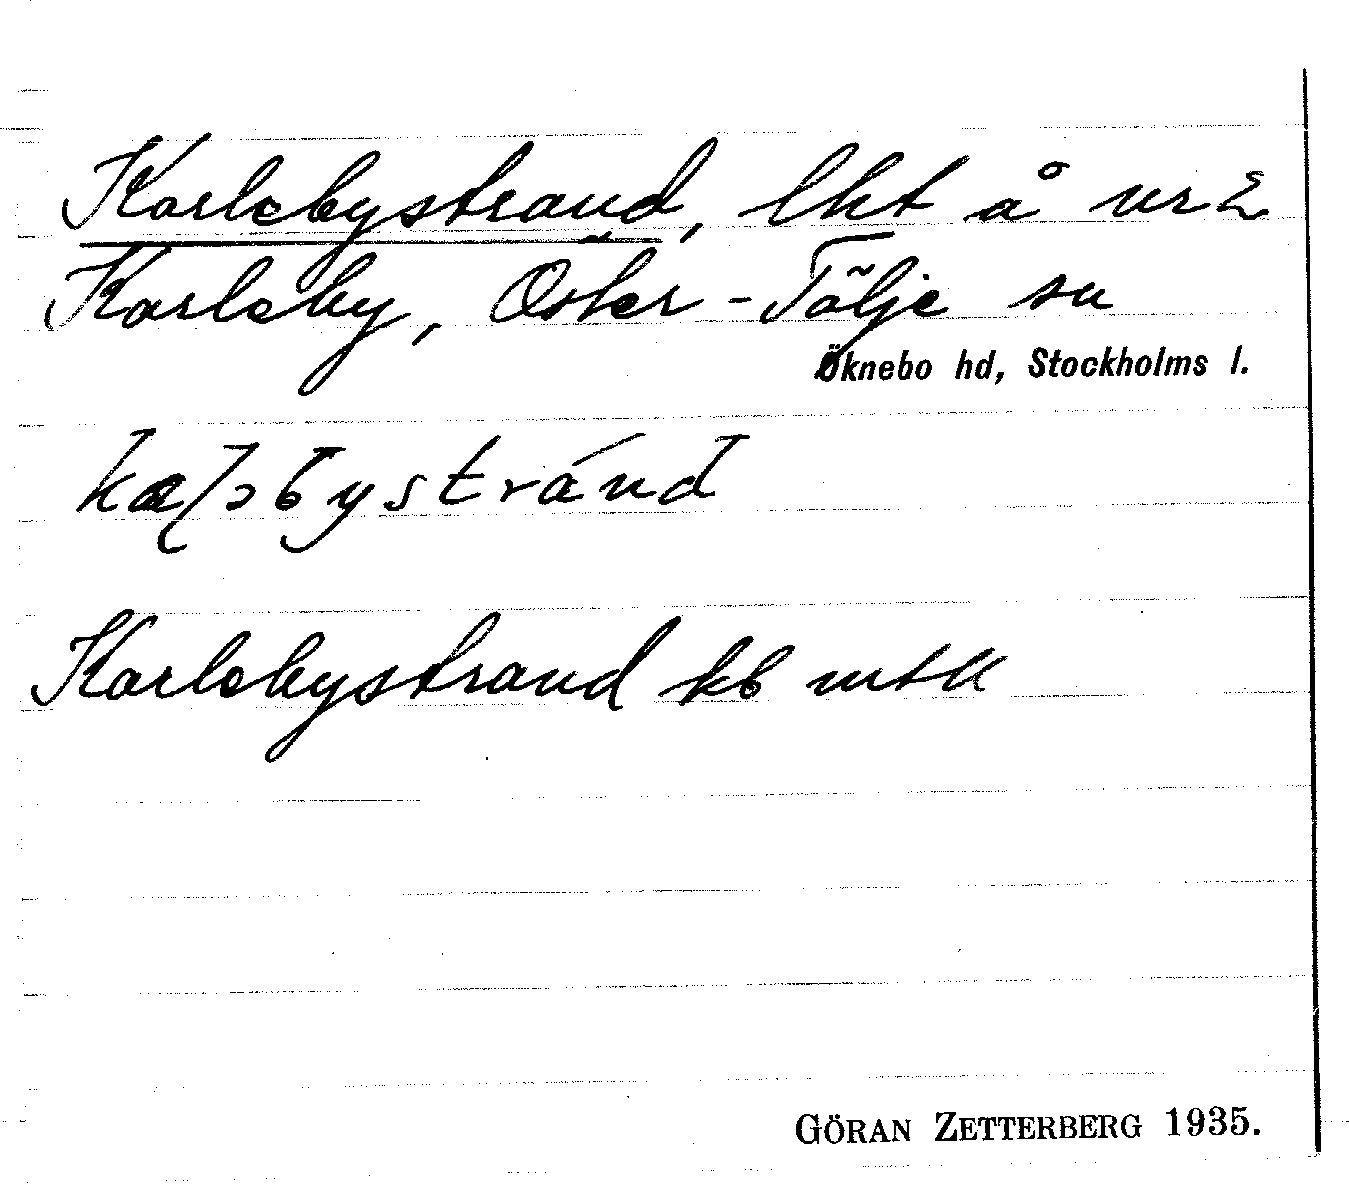 Karlebystrand, lht å nr 2
Karleby, Öster-Tälje sn
Öknebo hd, Stockholms l.
Karlebystrand kb mtll
GÖRAN ZETTERBERG 1935.